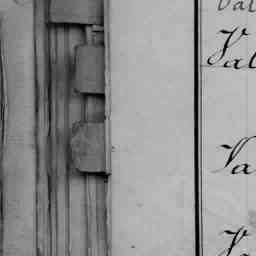 Val
Val
Va
Va